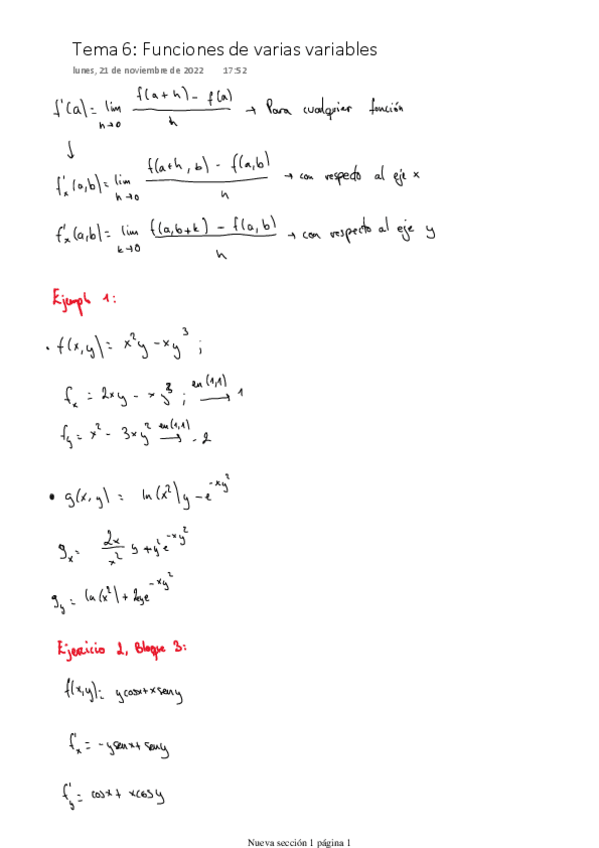 Tema 6: Funciones de varias variables
lunes, 21 de noviembre de 2022 17:52
f'(a) = lim h→0 (f(a+h) - f(a)) / h → Para cualquier función
↓
f'x(a,b) = lim h→0 (f(a+h, b) - f(a,b)) / h → con respecto al eje x
f'x(a,b) = lim k→0 (f(a,b+k) - f(a,b)) / h → con respecto al eje y
Ejemplo 1:
• f(x,y) = x²y - xy³ ;
fx = 2xy - xy³ ; en (1,1) → 1
fy = x² - 3xy² en (1,1) → -2
• g(x,y) = ln(x²)y - e^(-xy²)
gx = (2x / x²) y + y²e^(-xy²)
gy = ln(x²) + 2xye^(-xy²)
Ejercicio 2, Bloque 3:
f(x,y) = ycosx + xseny
f'x = -ysenx + seny
f'y = cosx + xcosy
Nueva sección 1 página 1